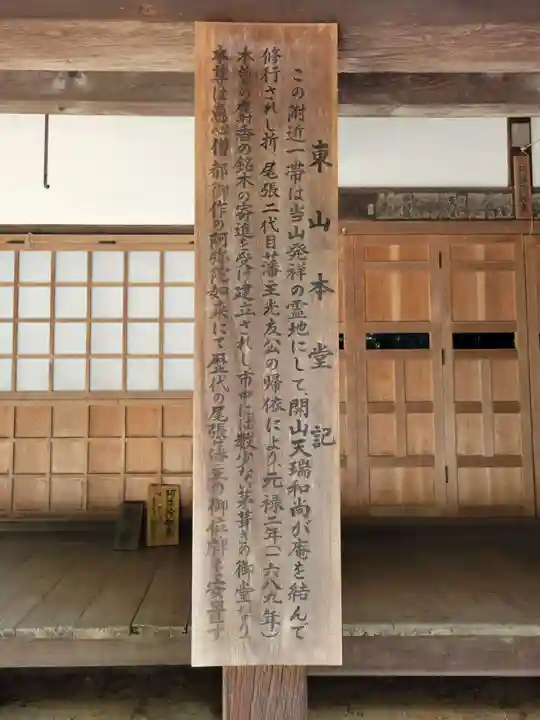 東山本堂記
この附近一帯は当山発祥の霊地にして、開山天瑞和尚が庵を結んで
修行されし折、尾張二代目藩主光友公の帰依により元禄二年(一六八九年)
木曽の麝香の銘木の寄進を受け建立されし市中には数少ない茅葺きの御堂なり、
本尊は恵心僧都御作の阿弥陀如来にて歴代の尾張藩主の御位牌を安置す